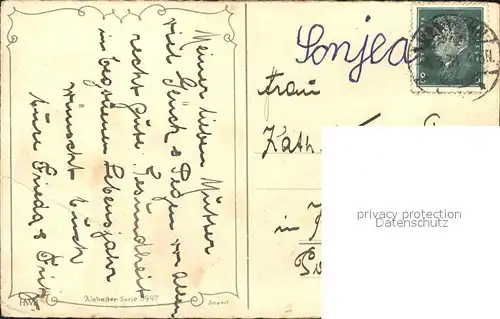 Meiner lieben Mutter
viel Glück & Segen vor allem
recht gute Gesundheit
im begonnenen Lebensjahr
wünscht Euch
Eure Frieda & Fritz
Sonjea
Frau
Kath
in
privacy protection
Datenschutz
HWB
Alabaster Serie 3997
Import